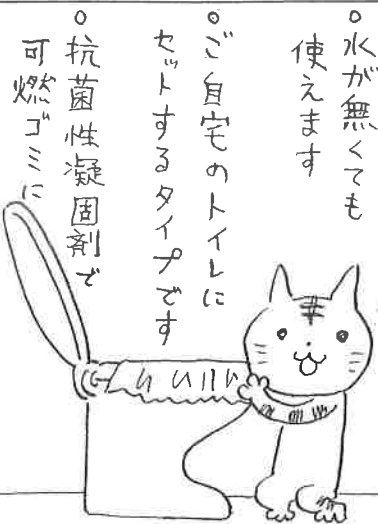 ○水が無くても
使えます
○ご自宅のトイレに
セットするタイプです
○抗菌性凝固剤で
可燃ゴミに